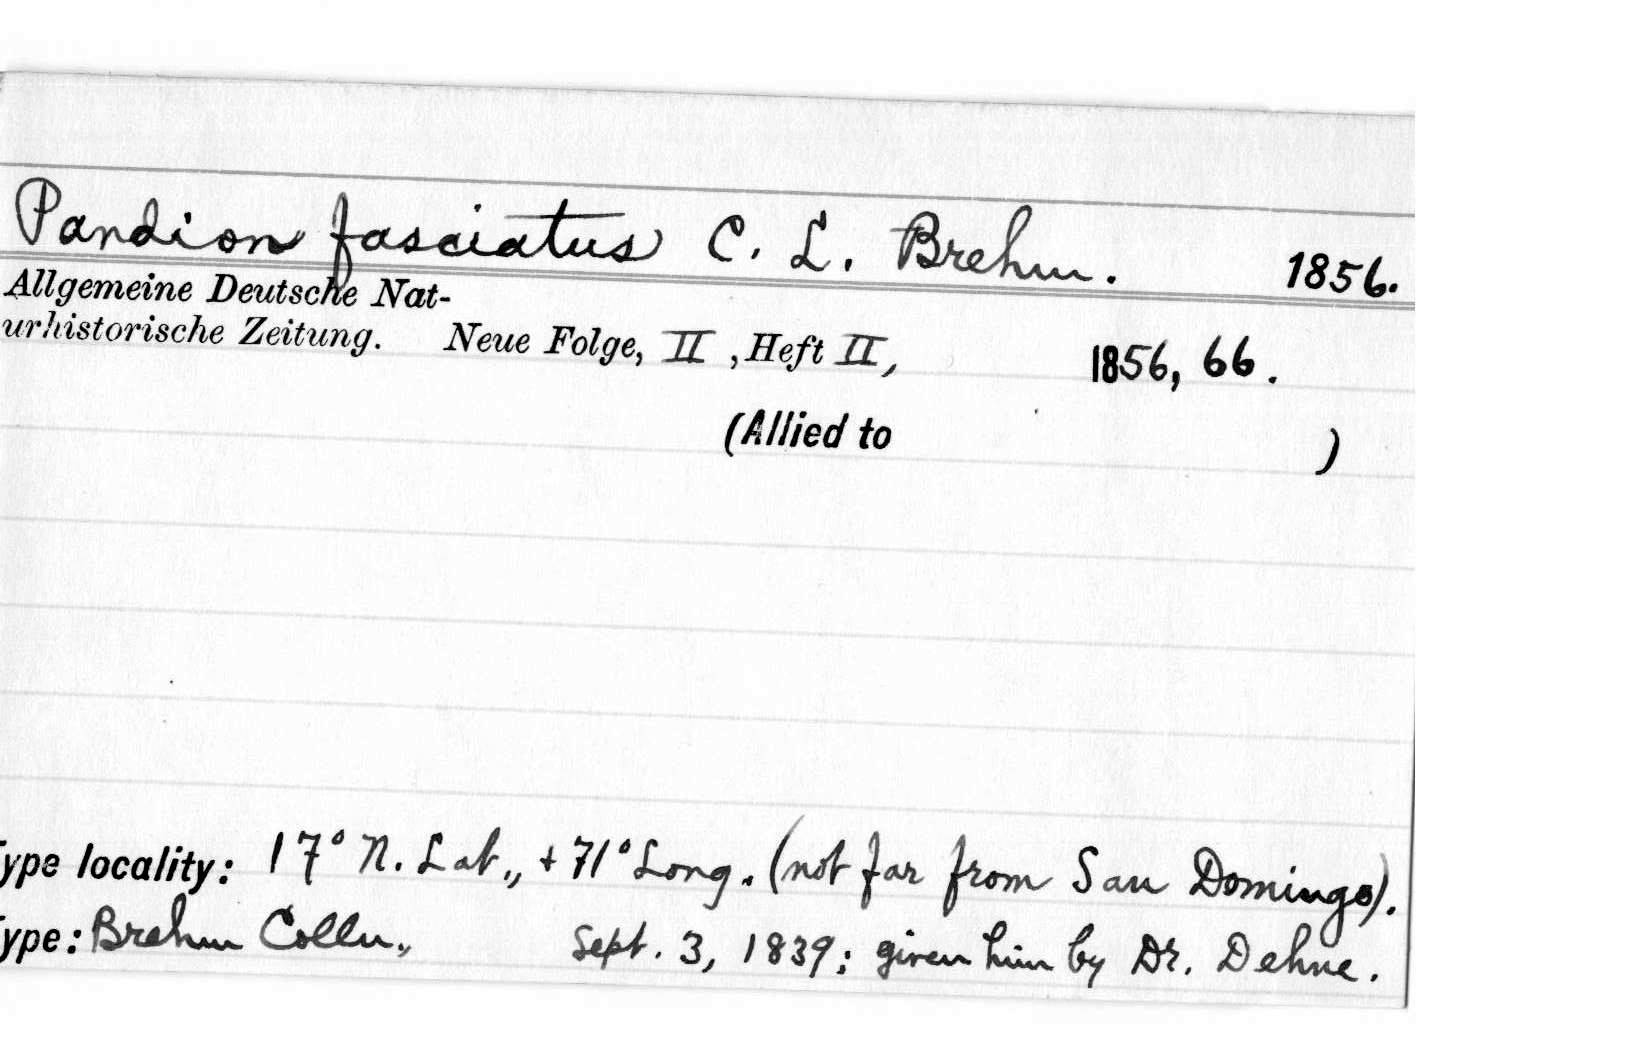 Pandion fasciatus C. L. Brehm. 1856.
Allgemeine Deutsche Nat-
urhistorische Zeitung. Neue Folge, II , Heft II, 1856, 66.
(Allied to )
ype locality: 17° N. Lat., + 71° Long. (not far from San Domingo).
ype: Brehm Colln., Sept. 3, 1839; given him by Dr. Dehne.